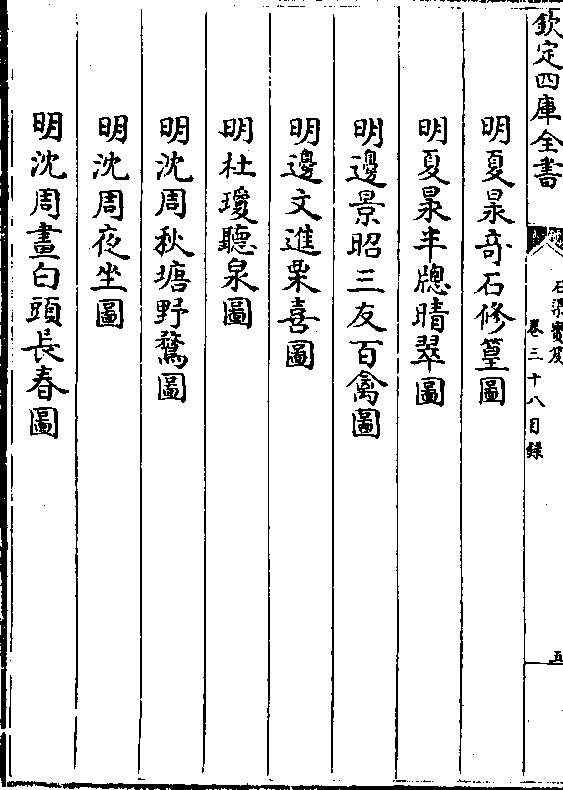 欽定四庫全書
石渠寶笈
卷三十八目錄
五
明夏㫤竒石修篁圖
明夏㫤半牕晴翠圖
明邊景昭三友百禽圖
明邊文進栗喜圖
明杜瓊聽泉圖
明沈周秋塘野鶩圖
明沈周夜坐圖
明沈周畫白頭長春圖